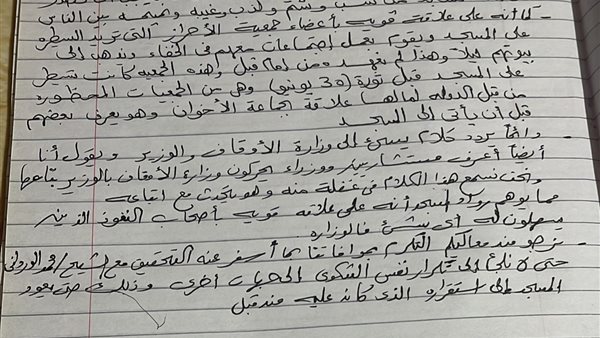 كما أنه على علاقة قوية بأعضاء جمعية الأحراز التى تريد السطره
على المسجد ويقوم بعمل إجتماعات معهم فى الخفاء ويذهب إلى
بيوتهم ليلاً وهذا لم نعهده من امام قبل وهذه الجمعية كانت تسيطر
على المسجد قبل ثورة (30 يونيو) وهى من الجمعيات المحظورة
من قبل الدوله لما لها علاقة بجماعة الأخوان وهو يعرف بعضهم
قبل أن يأتى إلى المسجد
- دائماً يردد كلام يسئ إلى وزارة الأوقاف والوزير ويقول أنا
أيضاً أعرف مستشارين ووزراء يحركون وزارة الأوقاف بالوزير بتاعها
ونحن نسمع هذا الكلام فى غفلة منه وهو يتحدث مع اتباعه
مما يوهم رواد المسجد أنه على علاقه قويه بأصحاب النفوذ الذين
يسهلون له أى شئ فالوزاره
- نرجو من معاليكم التكرم بموافاتنا بما أسفر عنه التحقيق مع الشيخ/
حتى لا نلجأ إلى تكرار نفس الشكوى إلى جهات أخرى وذلك حتى يعود
المسجد إلى استقراره الذى كان عليه من قبل